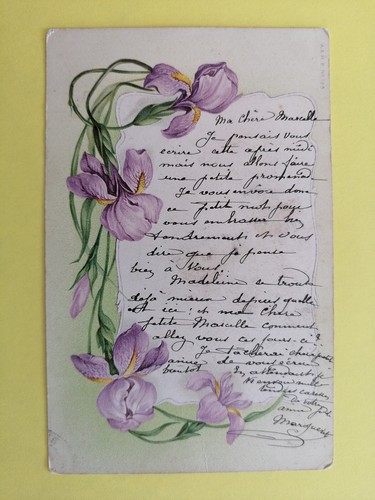 Ma Chère Marcelle
Je pensais vous
écrire cette après midi
mais nous allons faire
une petite promenade
Je vous envoie donc
ce petit mot pour
vous embrasser
tendrement et vous
dire que je pense
bien à vous.
Madeleine se trouve
déjà mieux depuis qu'elle
est ici: et ma Chère
petite Marcelle comment
allez vous ces jours-ci?
Je tâcherai
de vous écrire
bientôt En attendant
tendres caresses
de votre
amie